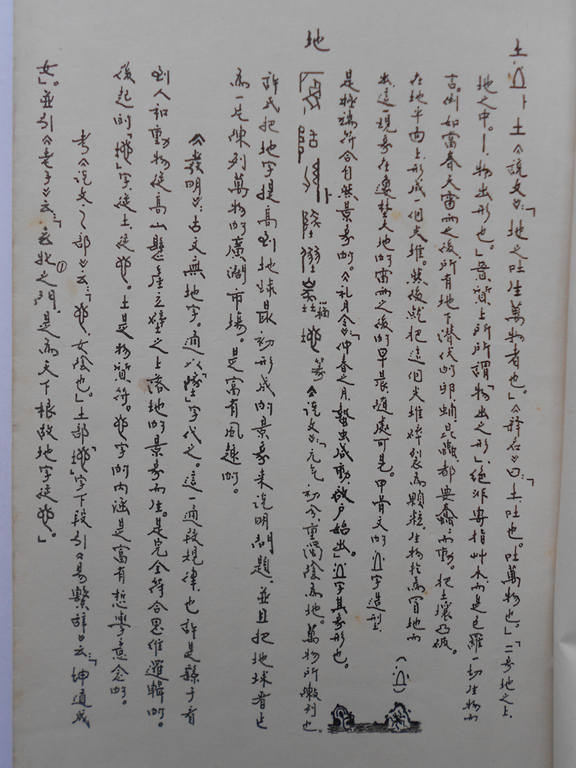 土 土《說文》：「地之吐生萬物者也。」《釋名》曰：「土吐也。吐萬物也。」「二象地之上、
地之中。丨，物出形也。」實質上所謂「物出之形」絕非專指艸木而是包羅一切生物而
言。例如當春天雷雨之後所有地下潛伏的卵蛹昆蟲都要蠢而動。把土壤凸破。
在地平面上形成一個尖堆。然後就把這個尖堆炸裂為顆粒。生物於焉冒地而
出。這一現象在遼墊天地的雷雨之後的早晨隨處可見。甲骨文的字造形
是極端符合自然景象的。《礼月令》：「仲春之月，蟄虫咸動，啟戶始出。」字其象形也。
地
籀 篆《說文》：「元气初分重濁陰為地。萬物所敶列也。
許氏把地字提高到地球最初形成的景象來說明問題，並且把地球看上
為一片陳列萬物的廣濶市場。是富有風趣的。
《發明》：古文無地字。通以「墬」字代之。這一通叚規律，也許是緣于看
到人和動物從高山懸崖立壁之上落地的景象而生。是完全符合思維邏輯的。
後起的「地」字，從土，從也。土是物質符。也字的內涵是富有哲學意念的。
考《說文》乀部》云：「也，女陰也。」土部「地」字下段引《易繫辭》云：「坤道成
女」。並引《老子》云：「玄牝之門，是為天下根故地字從也。」
①